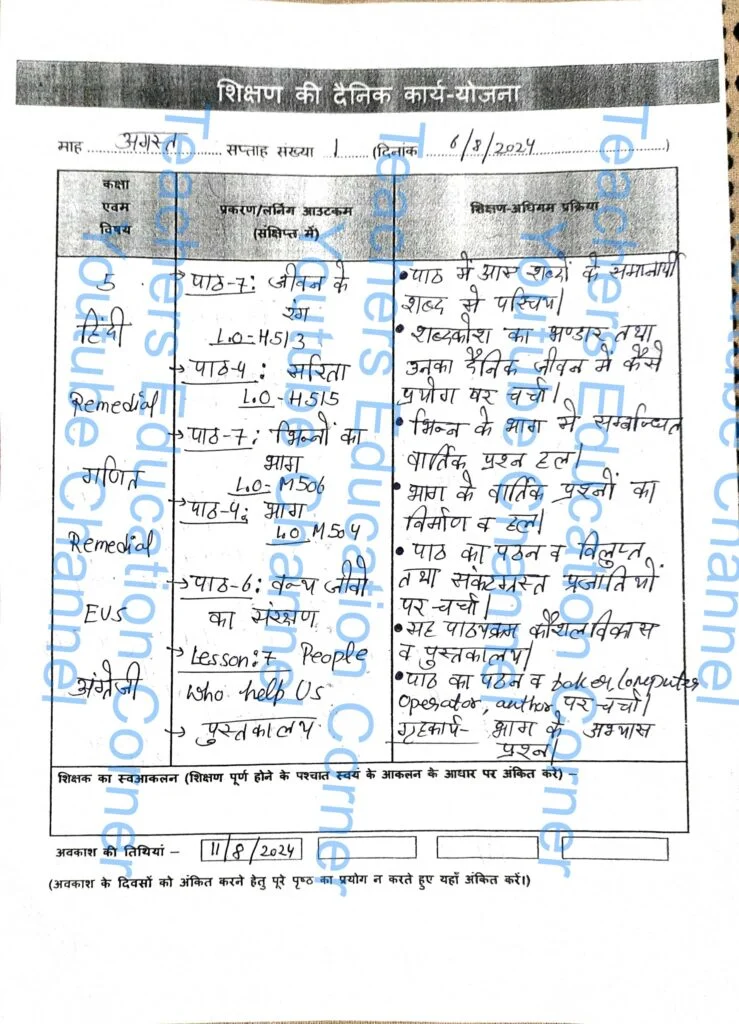 शिक्षण की दैनिक कार्य-योजना
माह ..... अगस्त ..... सप्ताह संख्या 1 ..... (दिनांक 6/8/2024 .....)
कक्षा
एवम
विषय
प्रकरण/लर्निंग आउटकम
(संक्षिप्त में)
शिक्षण-अधिगम प्रक्रिया
5
हिंदी
Remedial
गणित
Remedial
EVS
अंग्रेजी
→ पाठ-7: जीवन के
रंग
L.O-H513
→ पाठ-4 : सरिता
L.O-H515
→ पाठ-7: भिन्नों का
भाग
L.O-M506
→ पाठ-4: भाग
L.O M504
→ पाठ-6: वन्य जीवों
का संरक्षण
→ Lesson:7 People
who help Us
→ पुस्तकालय
• पाठ में आए शब्दों के समानार्थी
शब्द से परिचय।
• शब्दकोश का भण्डार तथा
उनका दैनिक जीवन में कैसे
प्रयोग पर चर्चा।
• भिन्न के भाग से सम्बन्धित
वार्तिक प्रश्न हल।
• भाग के वार्तिक प्रश्नों का
निर्माण व हल।
• पाठ का पठन व विलुप्त
तथा संकटग्रस्त प्रजातियों
पर चर्चा।
• सह पाठ्यक्रम कौशल विकास
व पुस्तकालय।
• पाठ का पठन व Computer
Operator, author पर चर्चा।
गृहकार्य- भाग के अभ्यास
प्रश्न।
शिक्षक का स्वआकलन (शिक्षण पूर्ण होने के पश्चात स्वयं के आकलन के आधार पर अंकित करें) –
अवकाश की तिथियां – 11/8/2024
(अवकाश के दिवसों को अंकित करने हेतु पूरे पृष्ठ का प्रयोग न करते हुए यहाँ अंकित करें।)
Teachers Education Corner
Youtube Channel
Teachers Education Corner
Youtube Channel
Teachers Education Corner
Youtube Channel